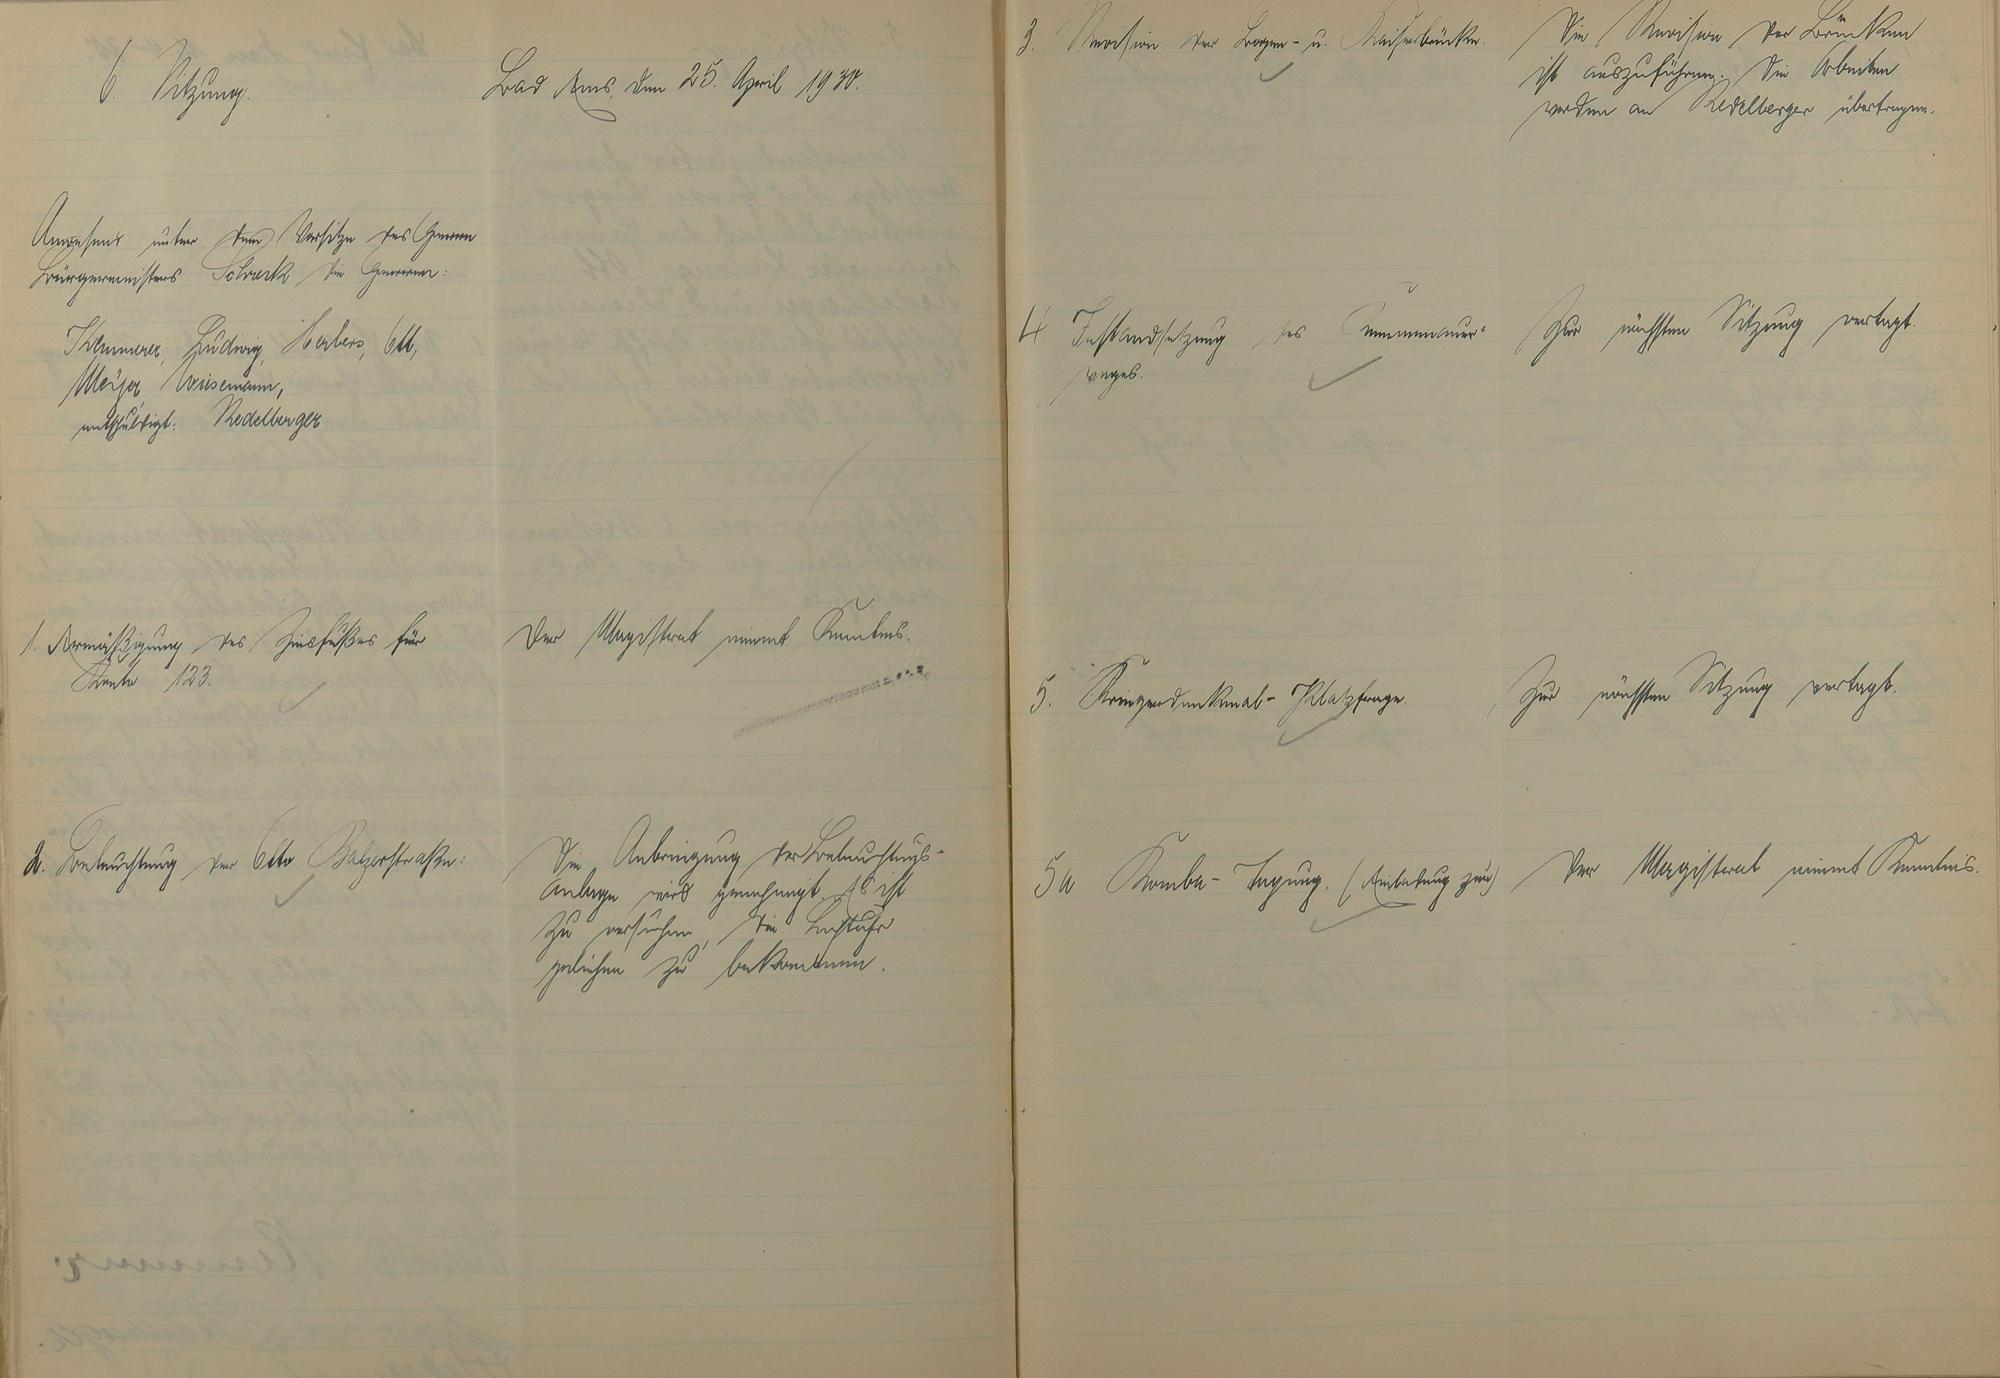 6. Sitzung.
Bad Ems, den 25. April 1930.
Anwesend unter dem Vorsitze des Herrn
Bürgermeisters Schreck die Herren:
Kemmerer, Ludwig, Herbers, Ott,
Meijer, Wiesemann,
entschuldigt: Redelberger
1. Ermäßigung des Zinsfußes für
Konto 123.
Der Magistrat nimmt Kenntnis.
2. Beleuchtung der Otto Balzerstraße:
Die Anbringung der Beleuchtungs-
anlage wird genehmigt. Es ist
zu versuchen, die Lichtuhr
geliehen zu bekommen.
3. Revision der Bogen- u. Kaiserbrücke.
Die Revision der Brücken
ist auszuführen. Die Arbeiten
werden an Redelberger übertragen.
4. Instandsetzung des Kemmenauer-
weges.
Zur nächsten Sitzung vertagt.
5. Kriegerdenkmal-Platzfrage.
Zur nächsten Sitzung vertagt.
5a Komba-Tagung. (Einladung zur)
Der Magistrat nimmt Kenntnis.